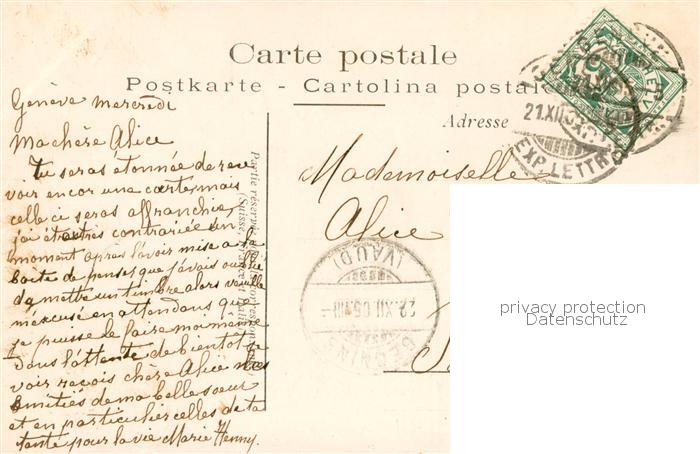 Carte postale
Postkarte - Cartolina postale
Adresse
Genève mercredi
Ma chère Alice
Tu seras étonnée de rece
voir encor une carte, mais
celle ci seras affranchie,
j'ai étaitres contrariée un
moment apres l'avoir mise a la
boite de penser que j'avais oublie
da mettre un timbre alors veuille
m'excusé en attendans que
je puisse le faire moi même
Dans l'attente de bientôt se
voir reçois chère Alice nos
amitiés de ma belle soeur
et en particulier celles de ta
tante pour la vie Marie Henny.
Partie réservée à la correspondance
(Suisse, France et Italie)
Mademoiselle
Alice
21.XII.05
EXP. LETTR.
(VAUD)
22.XII.05.VIII
BEGNINS
HELVETIA
privacy protection
Datenschutz